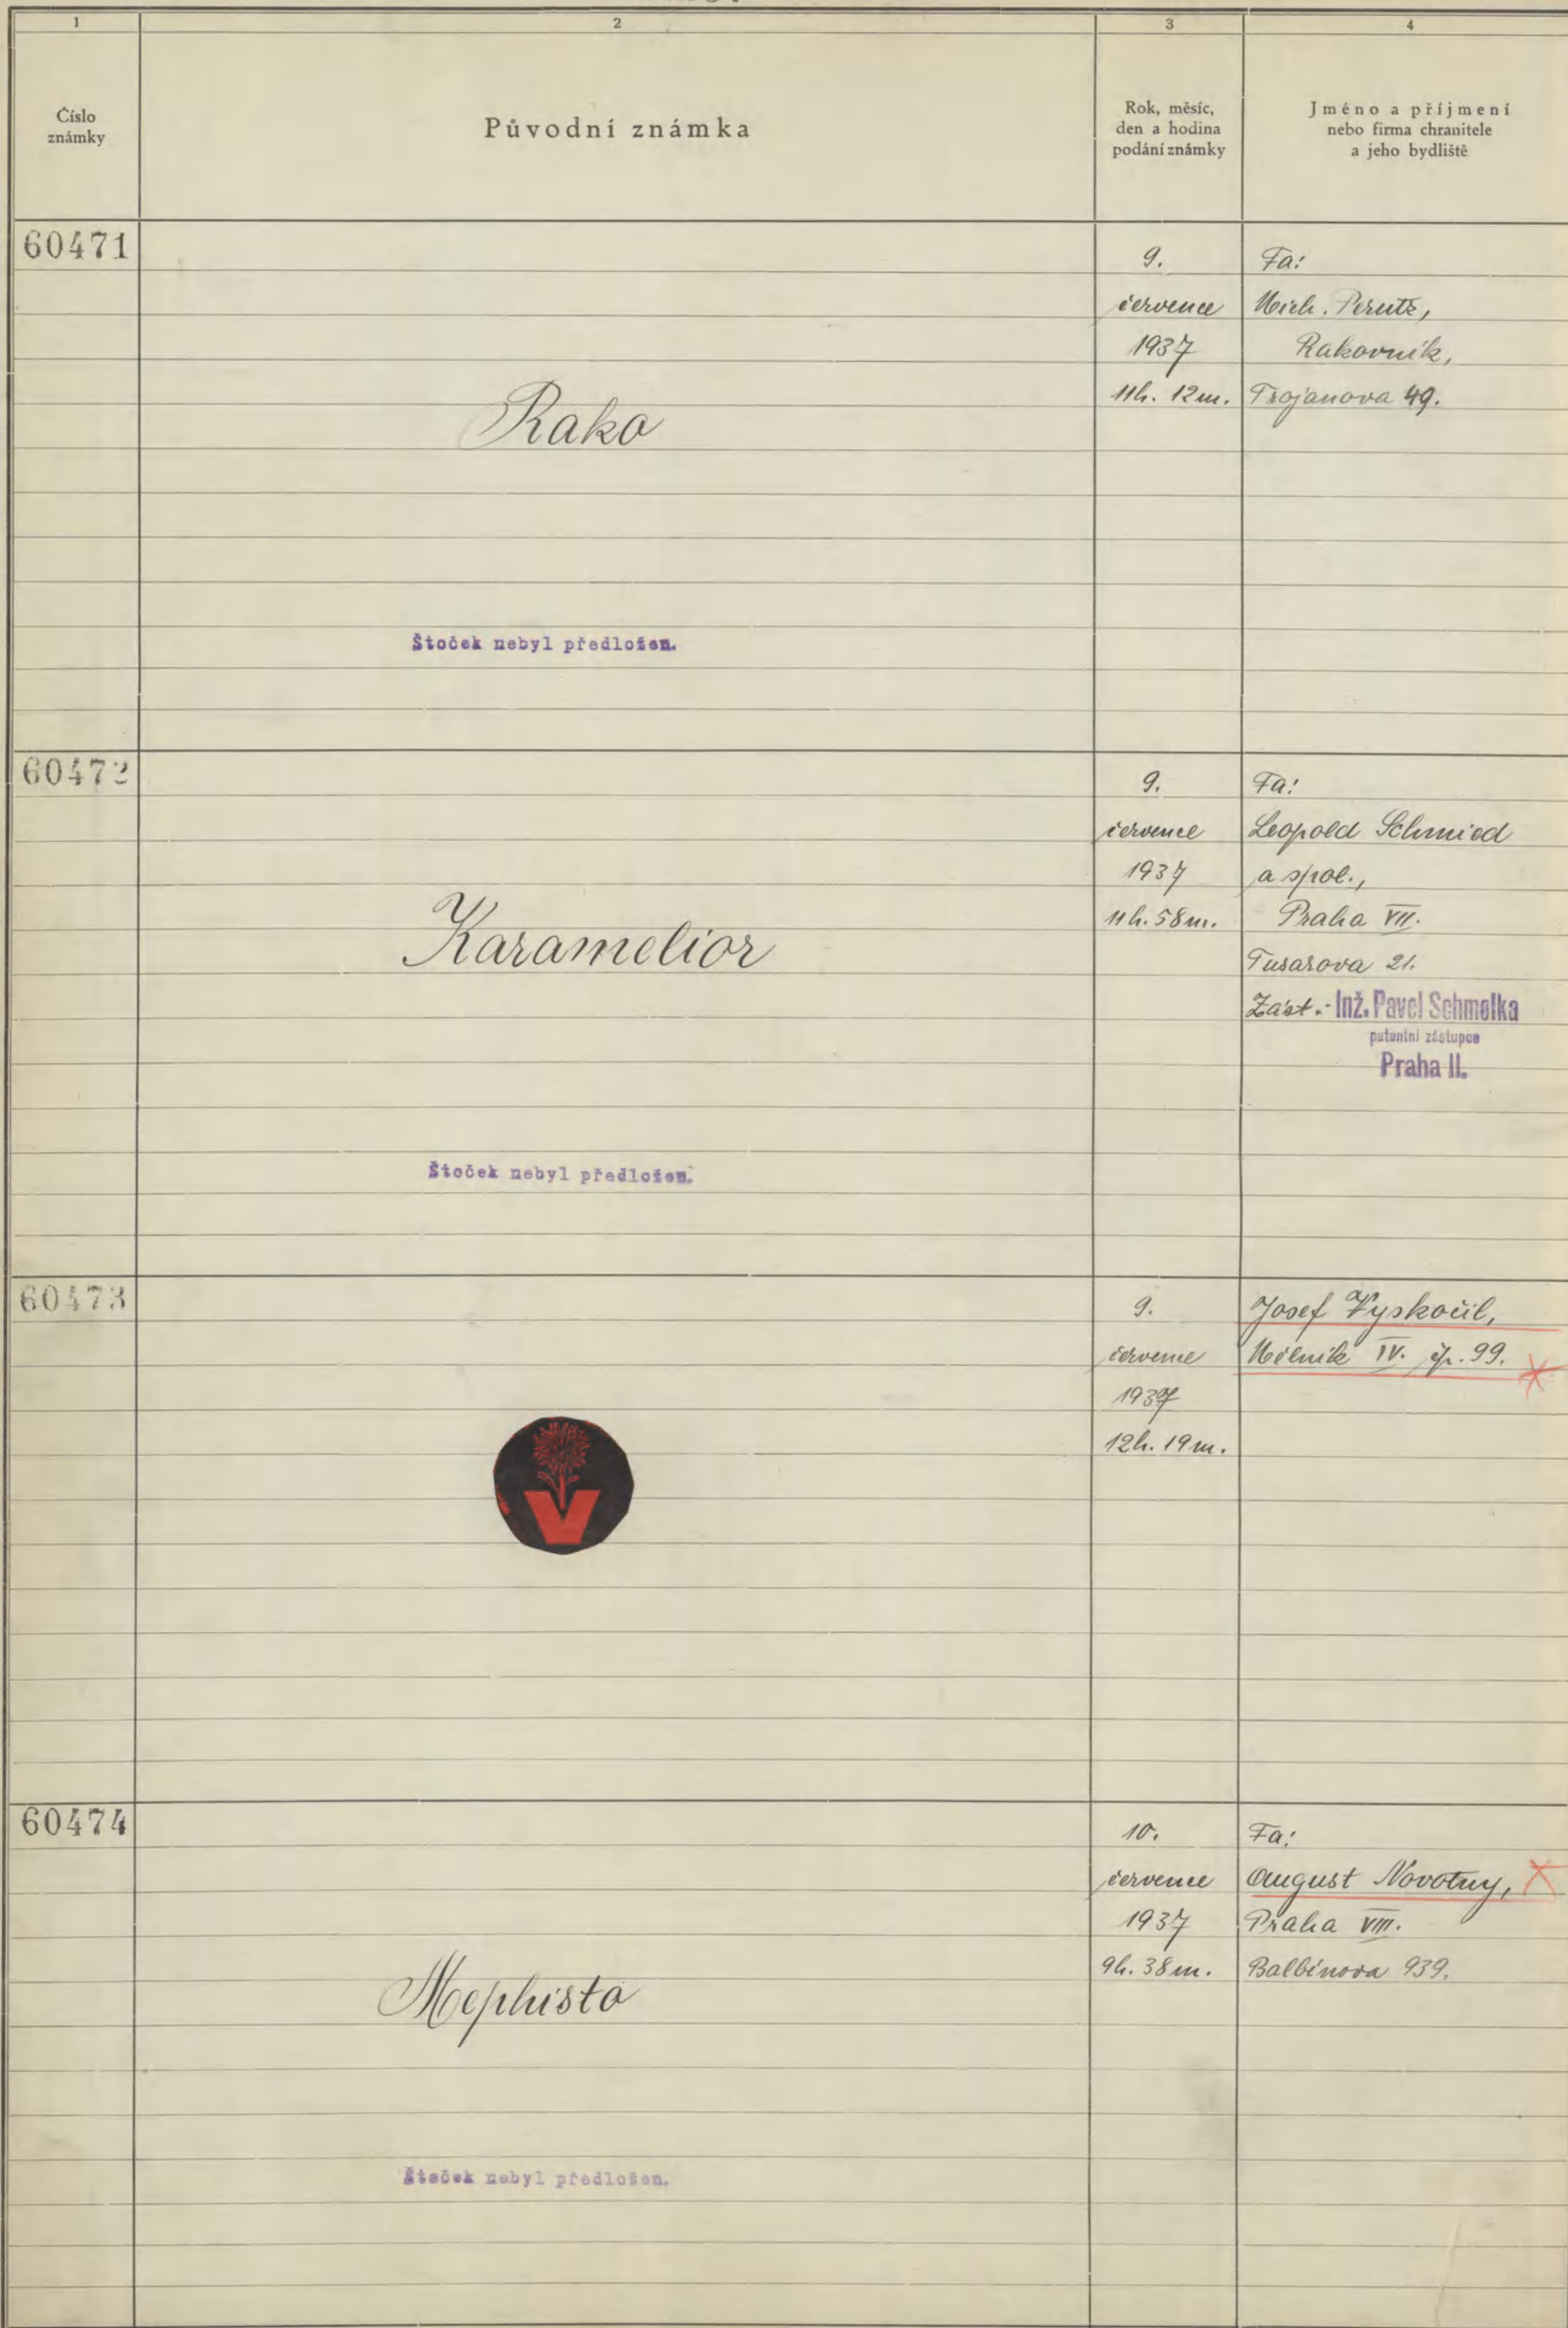 1
2
3
4
Číslo
známky
Původní známka
Rok, měsíc,
den a hodina
podání známky
Jméno a příjmení
nebo firma chranitele
a jeho bydliště
60471
Rako
Štoček nebyl předložen.
9.
července
1937
11h. 12m.
Fa:
Mich. Perutz,
Rakovník,
Trojanova 49.
60472
Karamelior
Štoček nebyl předložen.
9.
července
1937
11h. 58m.
Fa:
Leopold Schmied
a spol.,
Praha VII.
Tusarova 21.
Zást.: Inž. Pavel Schmolka
patentní zástupce
Praha II.
60473
V
9.
července
1937
12h. 19m.
Josef Vyskočil,
Mělník IV. čp. 99.
60474
Mephisto
Štoček nebyl předložen.
10.
července
1937
9h. 38m.
Fa:
August Novotny,
Praha VIII.
Balbínova 939.